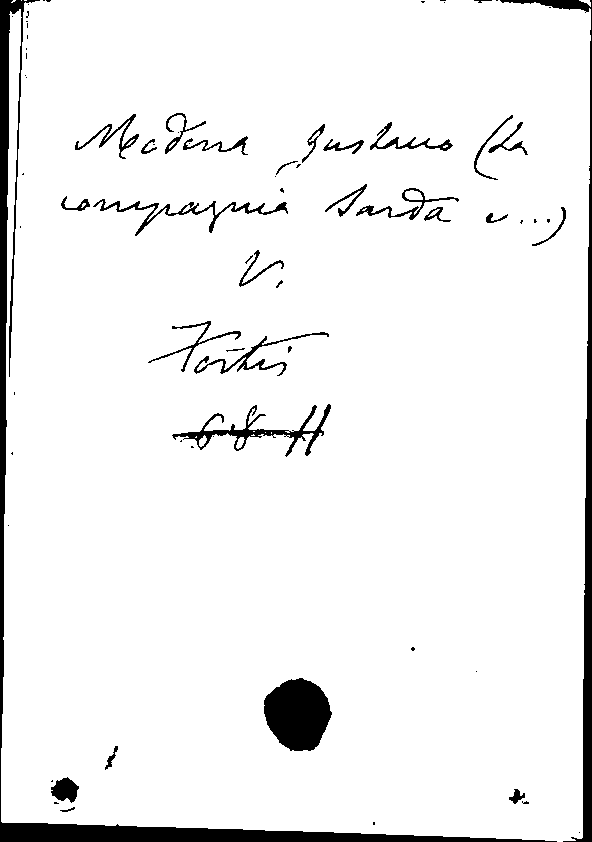 Modena Gustavo (La
compagnia Sarda e...)
V.
Fortis
68 H